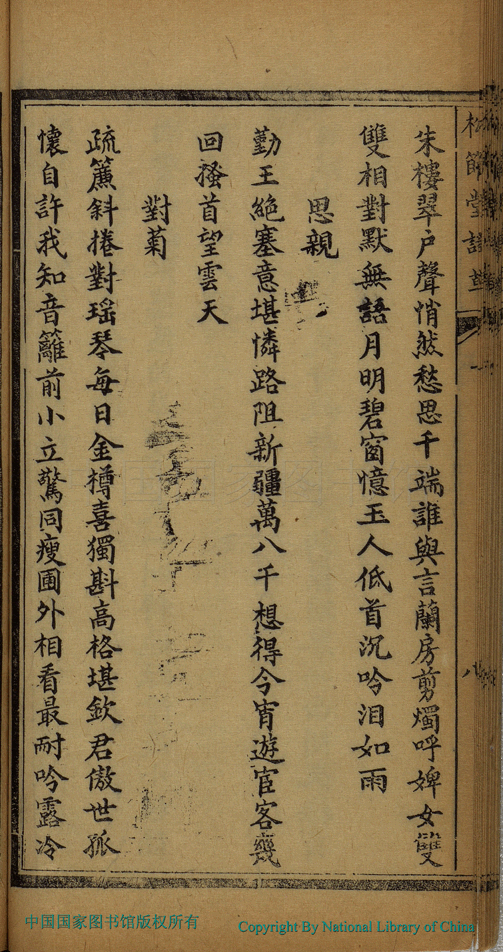 朱樓翠戶聲悄然愁思千端誰與言蘭房剪燭呼婢女雙
雙相對默無語月明碧窗憶玉人低首沉吟淚如雨
思親
勤王絕塞意堪憐路阻新疆萬八千想得今宵遊宦客幾
回搔首望雲天
對菊
疏簾斜捲對瑤琴每日金樽喜獨斟高格堪欽君傲世孤
懷自許我知音籬前小立驚同瘦圃外相看最耐吟露冷
中国国家图书馆版权所有
Copyright By National Library of China